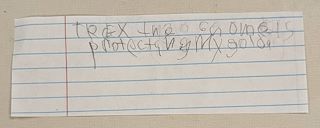 trex the gnome is
protecting my gold